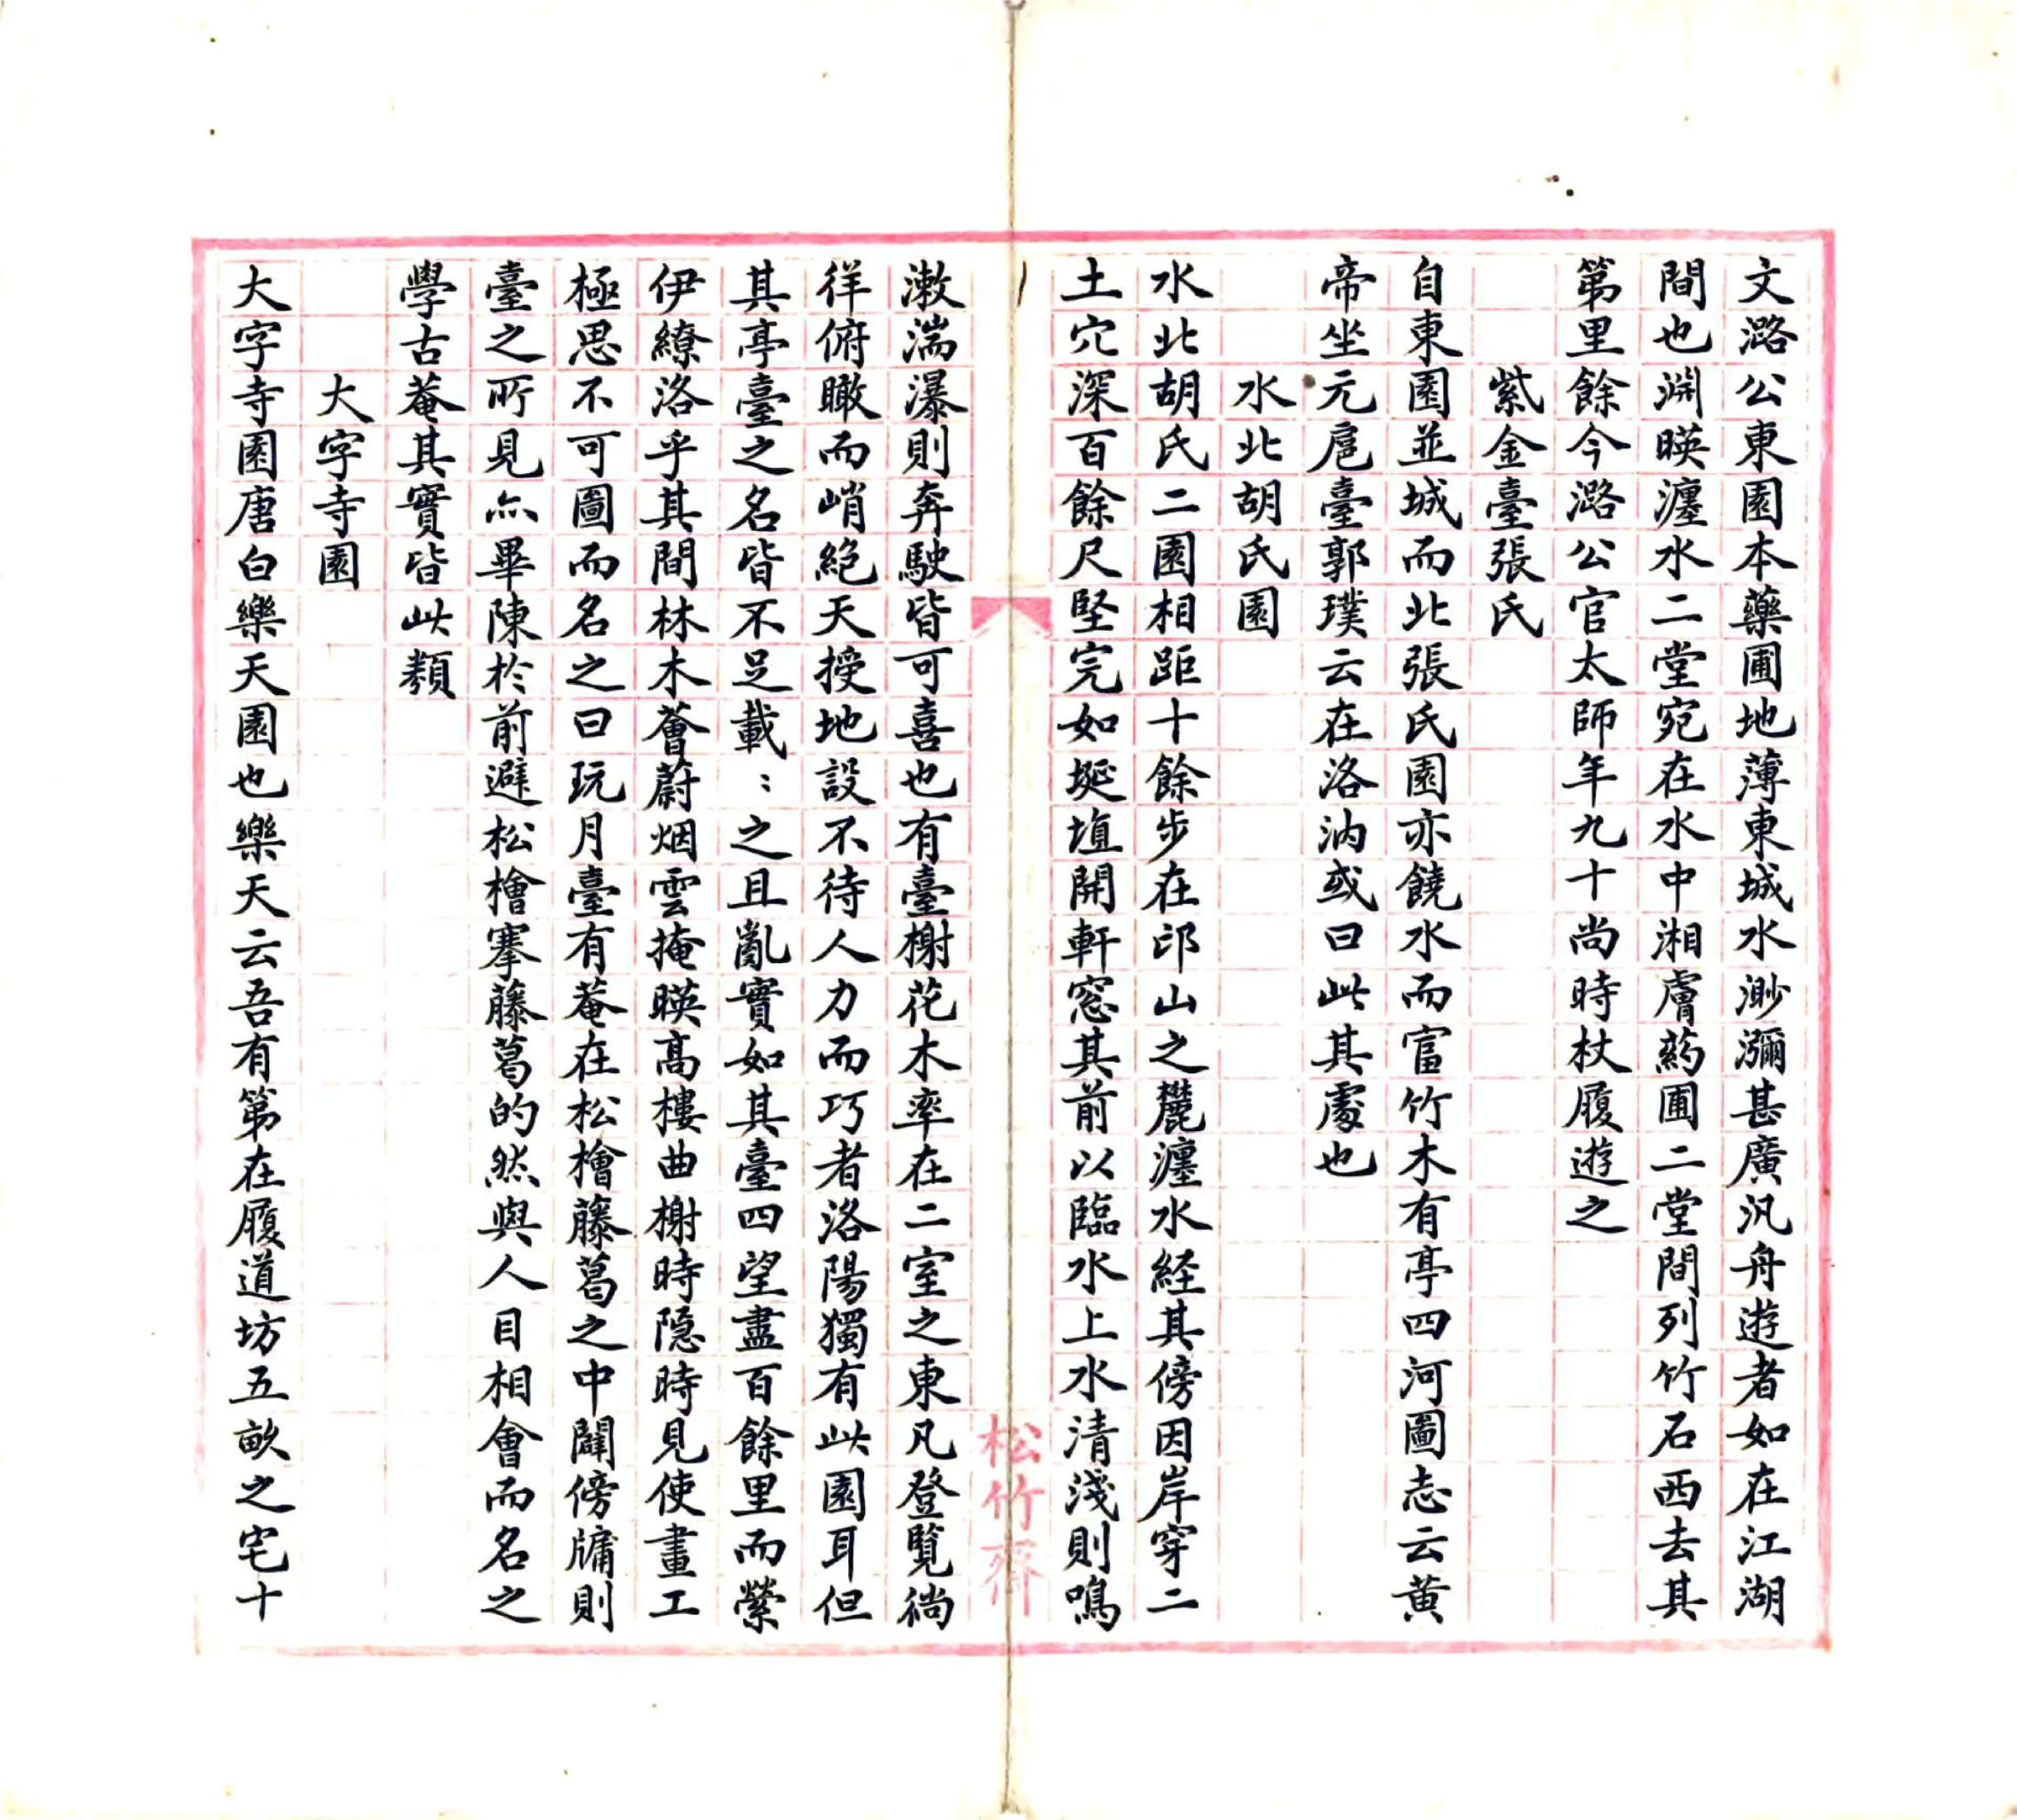 文潞公東園本藥圃地薄東城水渺瀰甚廣汎舟遊者如在江湖
間也淵暎瀍水二堂宛在水中湘膚葯圃二堂間列竹石西去其
第里餘今潞公官太師年九十尚時杖履遊之
紫金臺張氏
自東園並城而北張氏園亦饒水而富竹木有亭四河圖志云黃
帝坐元扈臺郭璞云在洛汭或曰此其處也
水北胡氏園
水北胡氏二園相距十餘步在邙山之麓瀍水経其傍因岸穿二
土穴深百餘尺堅完如埏埴開軒窓其前以臨水上水清淺則鳴
漱湍瀑則奔駛皆可喜也有臺榭花木率在二室之東凡登覧徜
徉俯瞰而峭絶天授地設不待人力而巧者洛陽獨有此園耳但
其亭臺之名皆不足載：之且亂實如其臺四望盡百餘里而縈
伊繚洛乎其間林木薈蔚烟雲掩暎高樓曲榭時隐時見使畫工
極思不可圖而名之曰玩月臺有菴在松檜藤葛之中闢傍牖則
臺之所見亦畢陳於前避松檜搴藤葛的然與人目相會而名之
學古菴其實皆此類
大字寺園
大字寺園唐白樂天園也樂天云吾有第在履道坊五畝之宅十
松竹齋